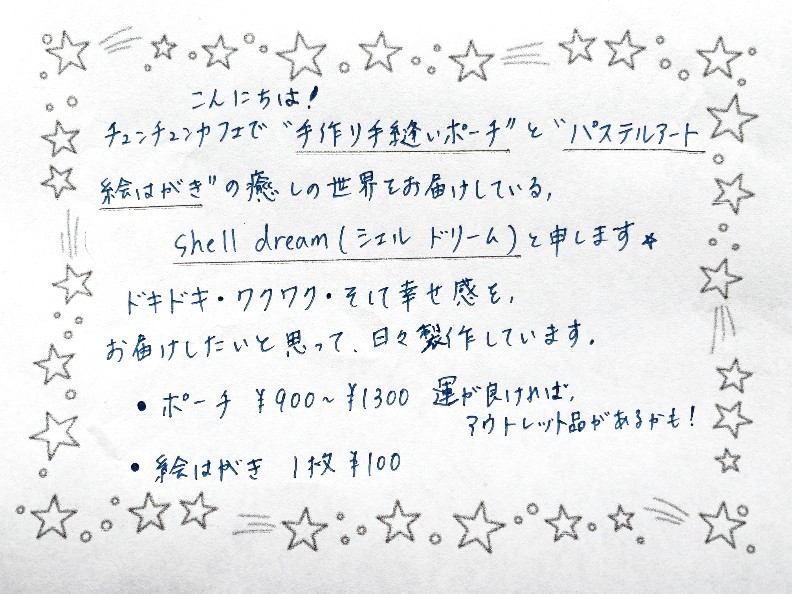 こんにちは!
チュンチュンカフェで“手作り手縫いポーチ”と“パステルアート
絵はがき”の癒しの世界をお届けしている,
shell dream(シェル ドリーム)と申します☆
ドキドキ・ワクワク・そして幸せ感を,
お届けしたいと思って、日々製作しています.
・ポーチ ¥900~¥1300 運が良ければ,
アウトレット品があるかも!
・絵はがき 1枚¥100